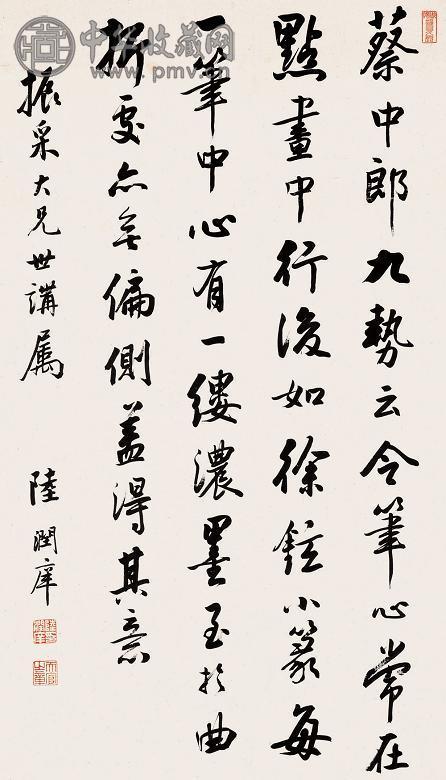 蔡中郎九勢云令筆心常在
點畫中行後如徐鉉小篆每
一筆中心有一縷濃墨至於曲
折處亦無偏側蓋得其意
振采大兄世講属
陸潤庠
中华收藏网
www.pmv.cn